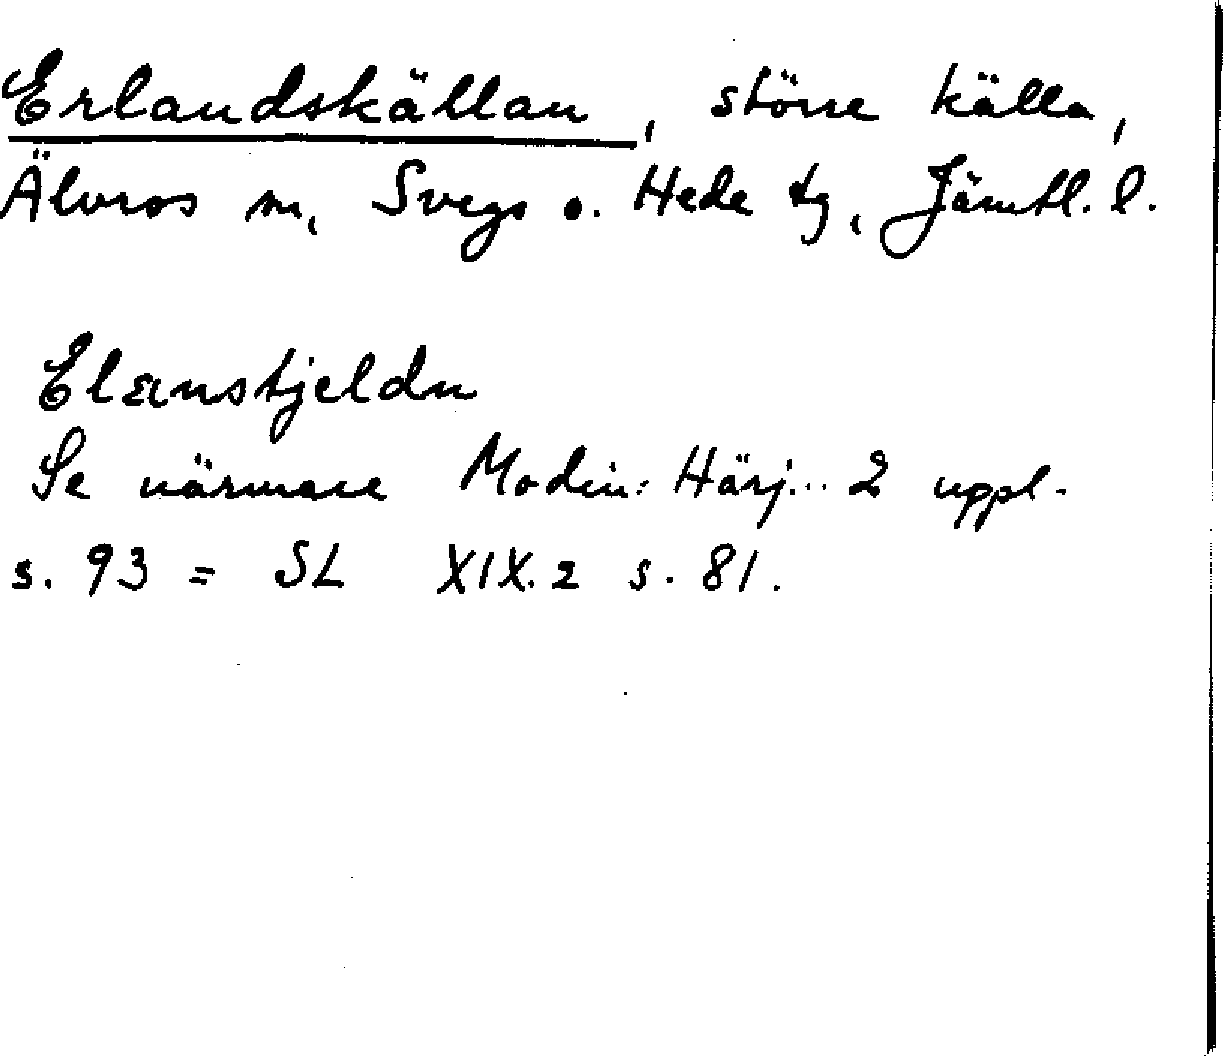 Erlandskällan, större källa,
Älvros sn, Svegs o. Hede tg, Jämtl. l.
Elænstjeldn
Se närmare Modin: Härj... 2 uppl.
s. 93 = SL XIX.2 s. 81.